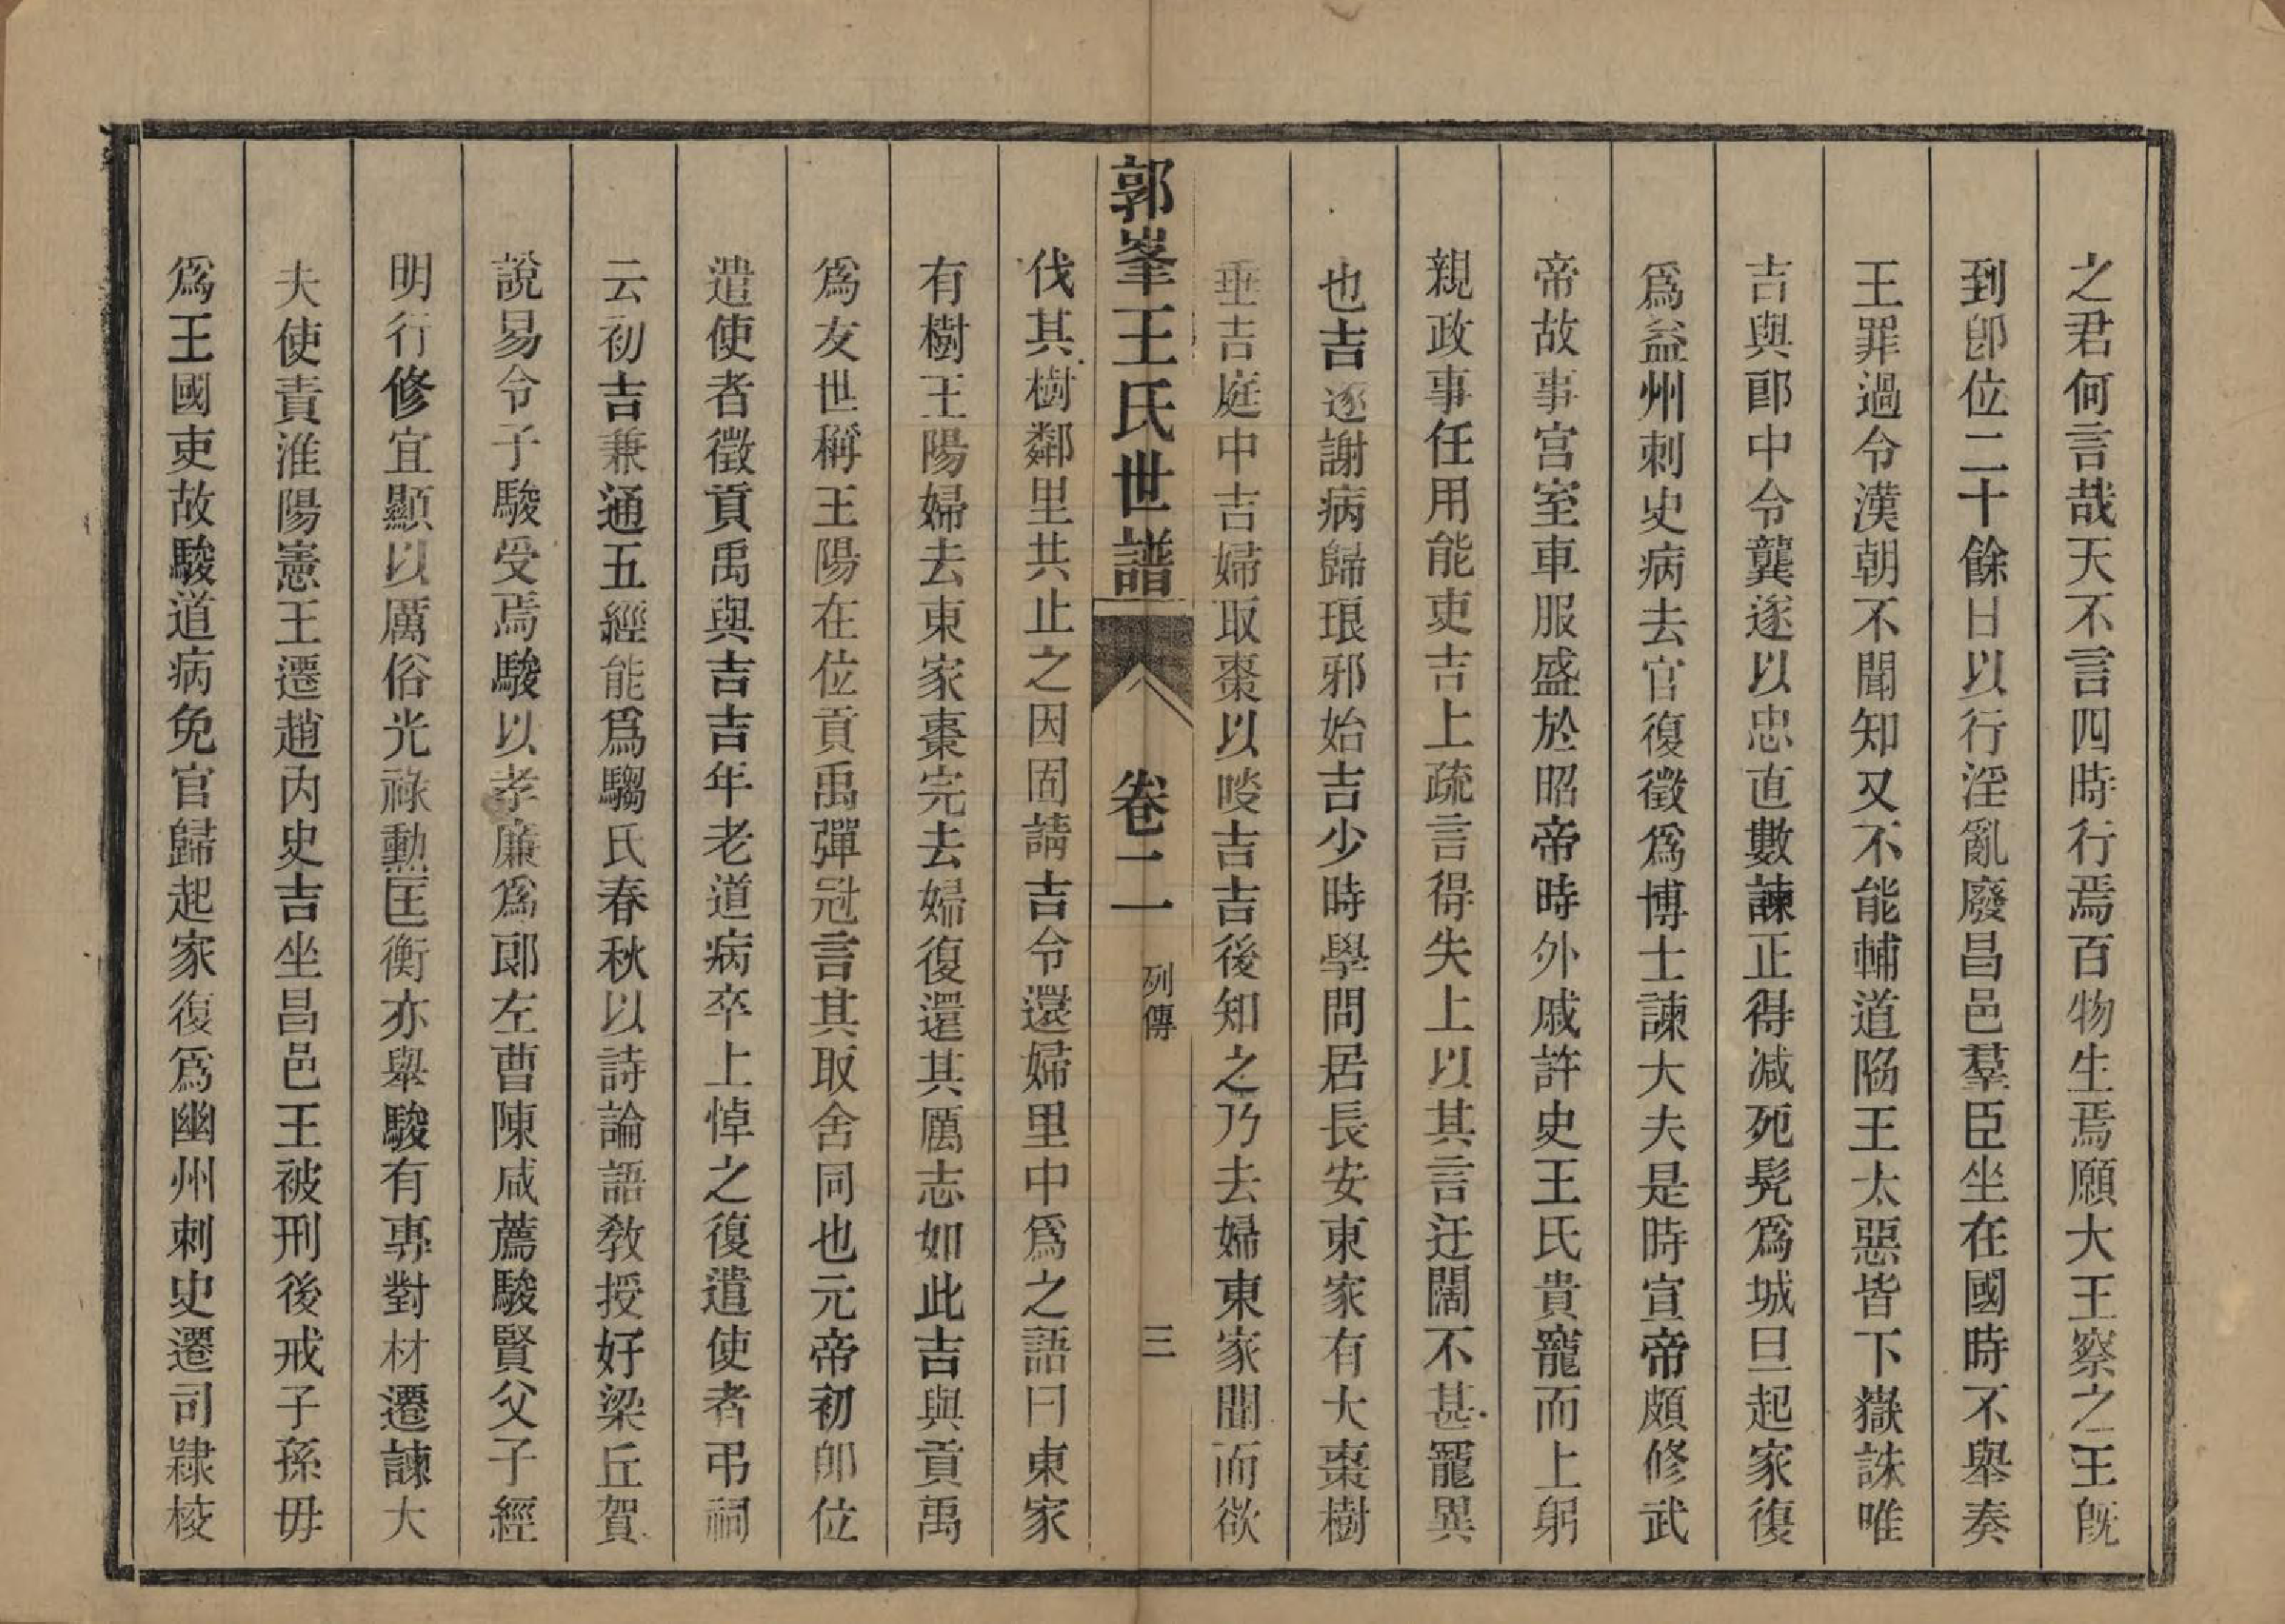 之君何言哉天不言四時行焉百物生焉願大王察之王旣
到卽位二十餘日以行淫亂廢昌邑羣臣坐在國時不舉奏
王罪過令漢朝不聞知又不能輔道陷王太惡皆下嶽誅唯
吉與郎中令龔遂以忠直數諫正得减死髠爲城旦起家復
爲益州刺史病去官復徵爲博士諫大夫是時宣帝頗修武
帝故事宮室車服盛於昭帝時外戚許史王氏貴寵而上躬
親政事任用能吏吉上疏言得失上以其言迂闊不甚寵異
也吉逐謝病歸琅邪始吉少時學問居長安東家有大棗樹
垂吉庭中吉婦取棗以啖吉吉後知之乃去婦東家聞而欲
郭峯王氏世譜 卷二 列傳 三
伐其樹鄰里共止之因固請吉令還婦里中爲之語曰東家
有樹王陽婦去東家棗完去婦復還其厲志如此吉與貢禹
爲友世稱王陽在位貢禹彈冠言其取舍同也元帝初卽位
遣使者徵貢禹與吉吉年老道病卒上悼之復遣使者弔祠
云初吉兼通五經能爲騶氏春秋以詩論語敎授好梁丘賀
說易令子駿受焉駿以孝廉爲郎左曹陳咸薦駿賢父子經
明行修宜顯以厲俗光祿勳匡衡亦舉駿有專對材遷諫大
夫使責淮陽憲王遷趙內史吉坐昌邑王被刑後戒子孫毋
爲王國吏故駿道病免官歸起家復爲幽州刺史遷司隸校